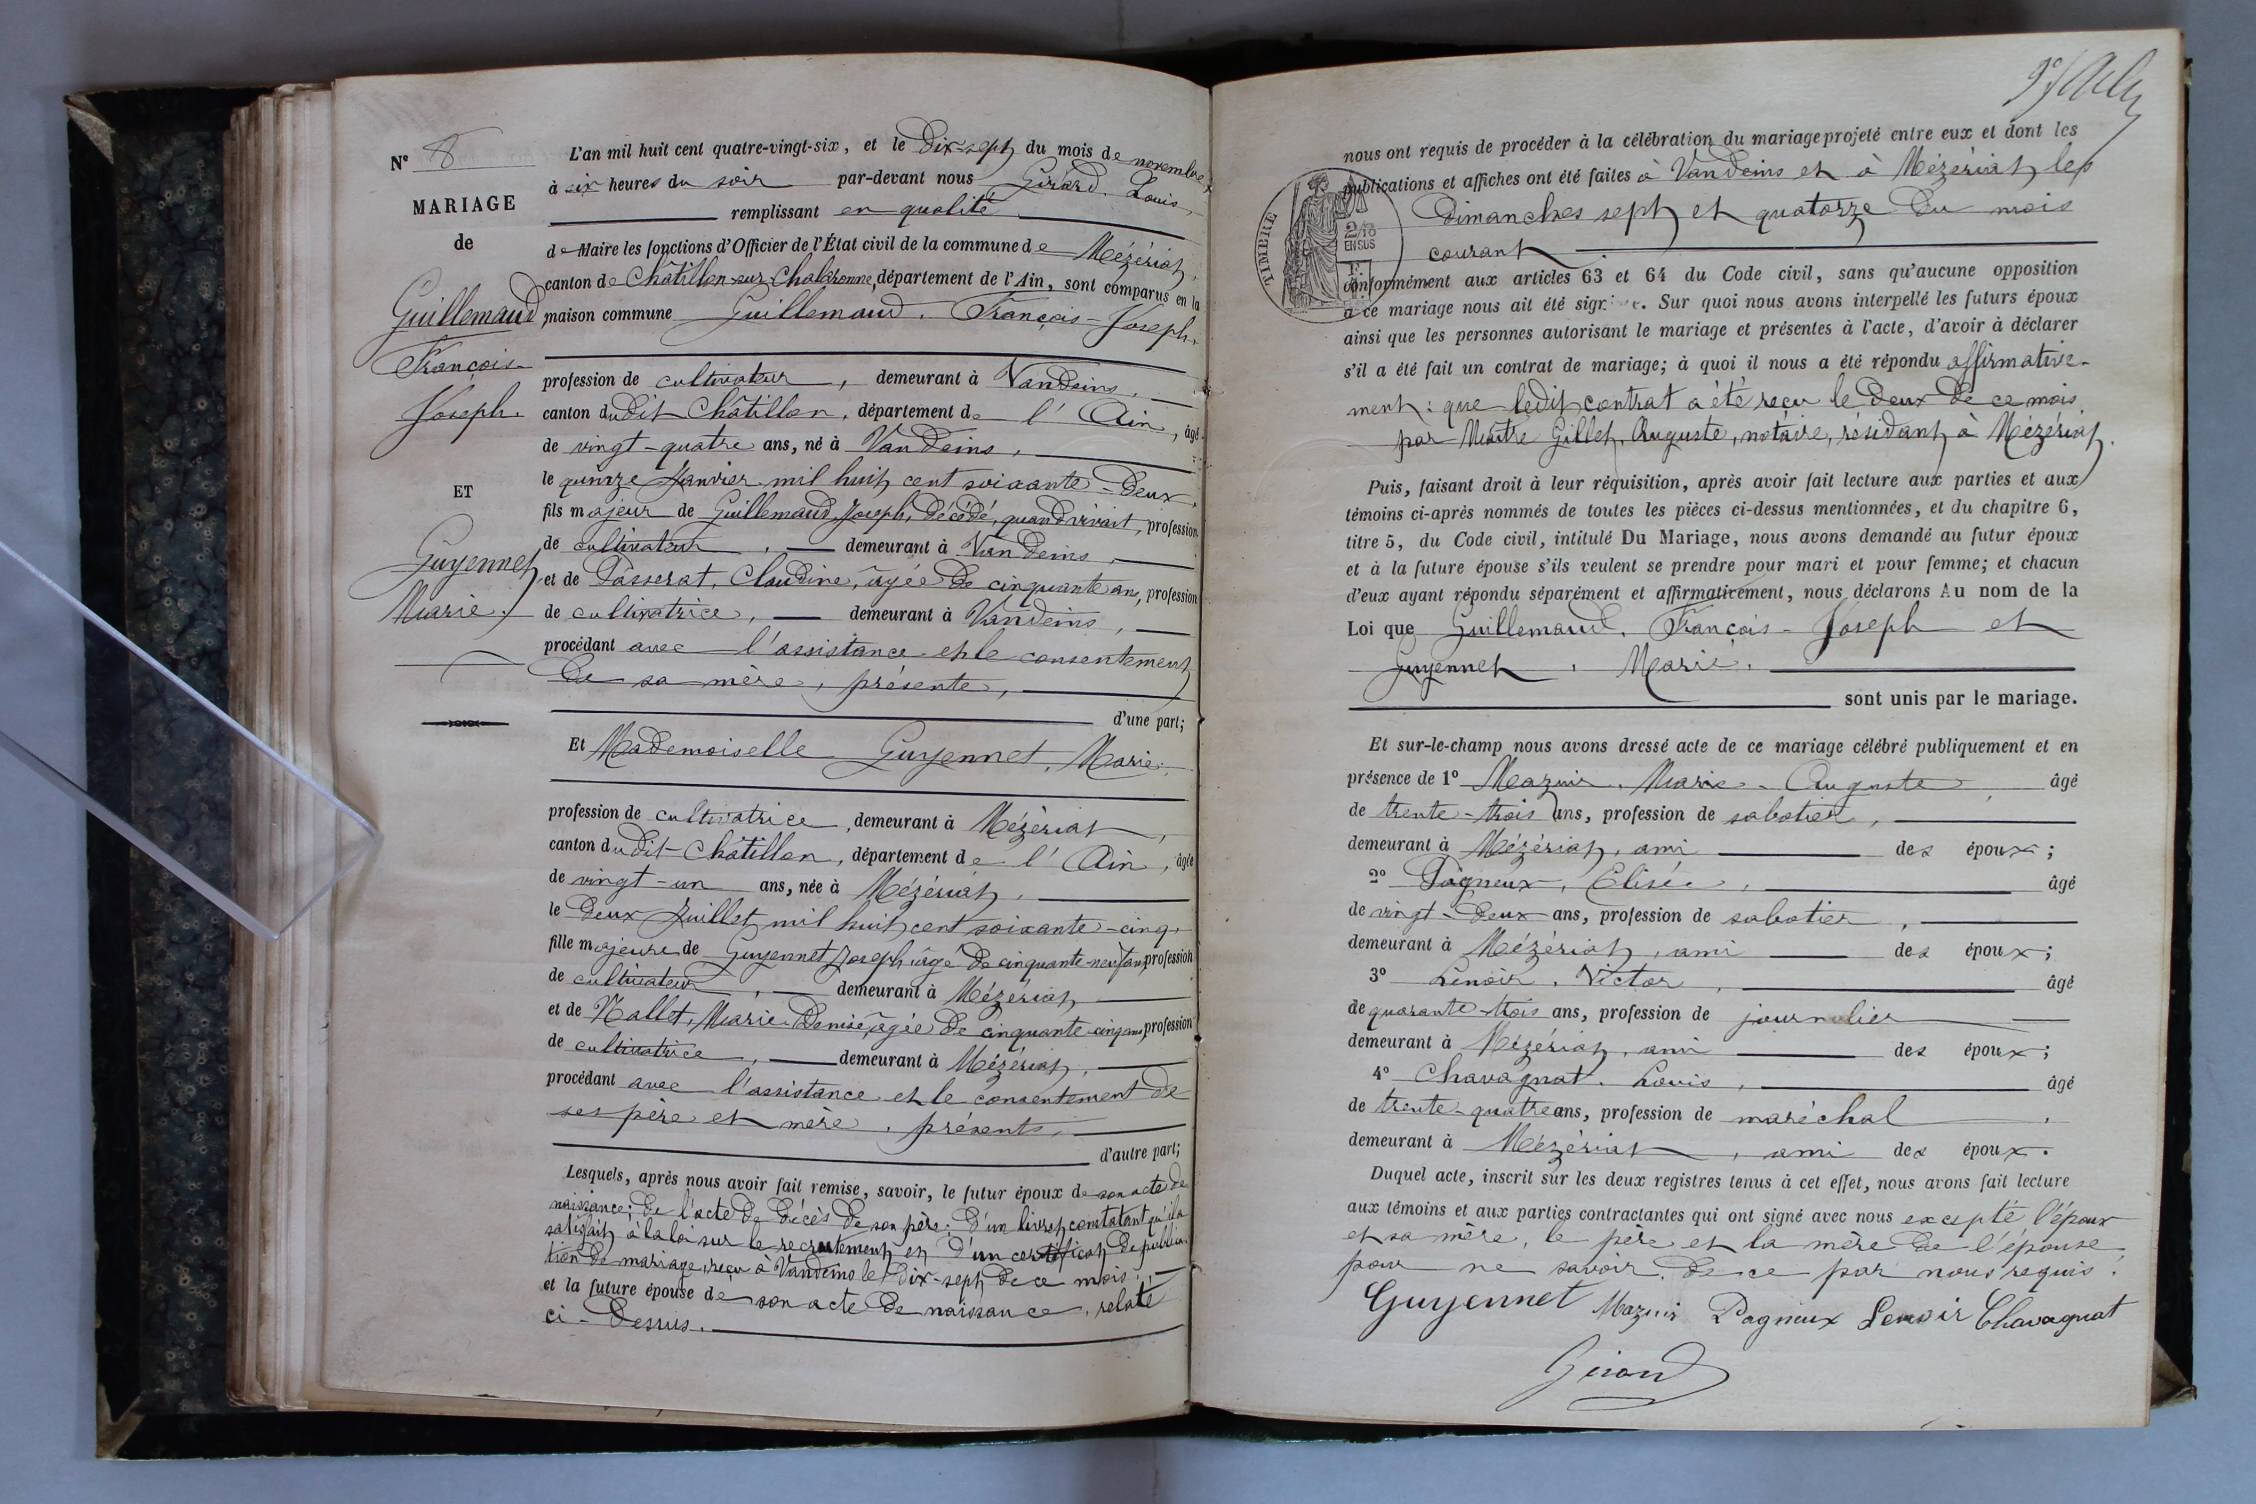 N° 8
MARIAGE
de
Guillemaud
François-
Joseph.
ET
Guyennet
Marie.
L'an mil huit cent quatre-vingt-six, et le Dix-sept du mois de novembre
à six heures du soir par-devant nous Girard, Louis,
remplissant en qualité
de Maire les fonctions d'Officier de l'État civil de la commune de Mézériat,
canton de Châtillon-sur-Chalaronne, département de l'Ain, sont comparus en la
maison commune Guillemaud, François-Joseph,
profession de cultivateur, demeurant à Vandeins,
canton dudit Châtillon, département de l'Ain, âgé
de vingt-quatre ans, né à Vandeins,
le quinze Janvier mil huit cent soixante-deux,
fils majeur de Guillemaud, Joseph, décédé, quand vivait, profession
de cultivateur, demeurant à Vandeins,
et de Passerat, Claudine, âgée de cinquante ans, profession
de cultivatrice, demeurant à Vandeins,
procédant avec l'assistance et le consentement
de sa mère, présente,
d'une part;
Et Mademoiselle Guyennet, Marie,
profession de cultivatrice, demeurant à Mézériat,
canton dudit Châtillon, département de l'Ain, âgée
de vingt-un ans, née à Mézériat,
le deux Juillet mil huit cent soixante-cinq,
fille majeure de Guyennet Joseph âgé de cinquante-neuf ans, profession
de cultivateur, demeurant à Mézériat,
et de Nallet, Marie-Denise, âgée de cinquante-cinq ans, profession
de cultivatrice, demeurant à Mézériat,
procédant avec l'assistance et le consentement de
ses père et mère, présents,
d'autre part;
Lesquels, après nous avoir fait remise, savoir, le futur époux de son acte de
naissance; de l'acte de décès de son père; d'un livret constatant qu'il a
satisfait à la loi sur le recrutement et d'un certificat de publica-
tion de mariage, reçu à Vandeins le dix-sept de ce mois,
et la future épouse de son acte de naissance, relaté
ci-dessus.
nous ont requis de procéder à la célébration du mariage projeté entre eux et dont les
publications et affiches ont été faites à Vandeins et à Mézériat les
dimanches sept et quatorze du mois
courant
TIMBRE
2/10
EN SUS
conformément aux articles 63 et 64 du Code civil, sans qu'aucune opposition
à ce mariage nous ait été sign e. Sur quoi nous avons interpellé les futurs époux
ainsi que les personnes autorisant le mariage et présentes à l'acte, d'avoir à déclarer
s'il a été fait un contrat de mariage; à quoi il nous a été répondu affirmative-
ment: que ledit contrat a été reçu le deux de ce mois,
par Maître Gillet, Auguste, notaire, résidant à Mézériat.
Puis, faisant droit à leur réquisition, après avoir fait lecture aux parties et aux
témoins ci-après nommés de toutes les pièces ci-dessus mentionnées, et du chapitre 6,
titre 5, du Code civil, intitulé Du Mariage, nous avons demandé au futur époux
et à la future épouse s'ils veulent se prendre pour mari et pour femme; et chacun
d'eux ayant répondu séparément et affirmativement, nous déclarons Au nom de la
Loi que Guillemaud, François-Joseph et
Guyennet, Marie,
sont unis par le mariage.
Et sur-le-champ nous avons dressé acte de ce mariage célébré publiquement et en
présence de 1° Mazuir, Marie-Auguste, âgé
de trente-trois ans, profession de sabotier,
demeurant à Mézériat, ami des époux;
2° Pagneux, Elisée, âgé
de vingt-deux ans, profession de sabotier,
demeurant à Mézériat, ami des époux;
3° Lenoir, Victor, âgé
de quarante-trois ans, profession de journalier
demeurant à Mézériat, ami des époux;
4° Chavagnat, Louis, âgé
de trente-quatre ans, profession de maréchal,
demeurant à Mézériat, ami des époux.
Duquel acte, inscrit sur les deux registres tenus à cet effet, nous avons fait lecture
aux témoins et aux parties contractantes qui ont signé avec nous excepté l'époux
et sa mère, le père et la mère de l'épouse
pour ne savoir, de ce par nous requis.
Guyennet Mazuir Pagneux Lenoir Chavagnat
Girard